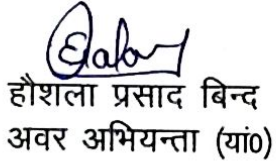 हौशला प्रसाद बिन्द
अवर अभियन्ता (यां०)